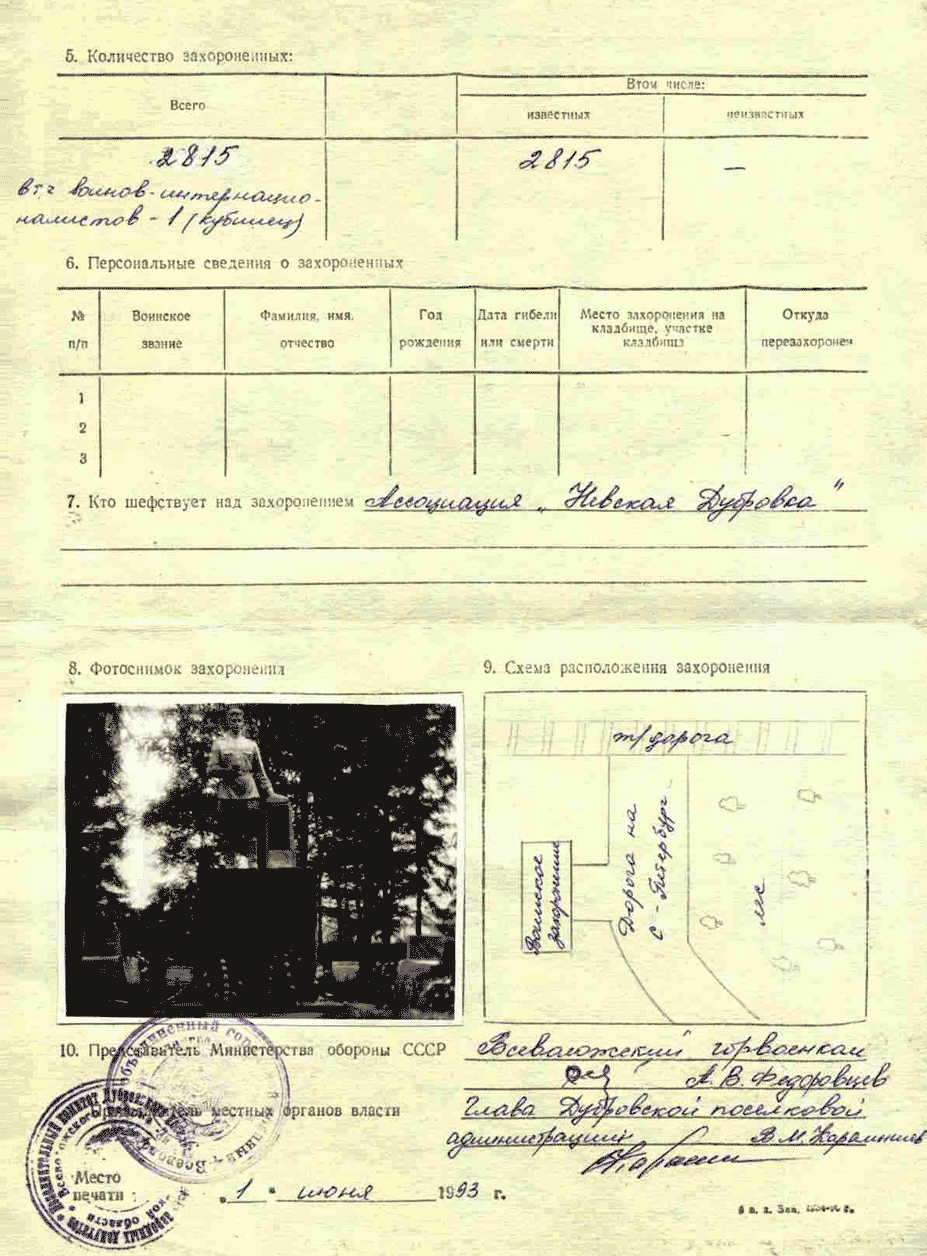 5. Количество захороненных:
Всего
Втом числе:
известных
неизвестных
2815
2815
—
в т.ч воинов-интернацио-
налистов - 1 (кубинец)
6. Персональные сведения о захороненных
№ п/п
Воинское звание
Фамилия, имя, отчество
Год рождения
Дата гибели или смерти
Место захоронения на кладбище, участке кладбища
Откуда перезахоронен
1
2
3
7. Кто шефствует над захоронением Ассоциация „Невская Дубровка"
8. Фотоснимок захоронения
9. Схема расположения захоронения
т/дорога
Воинское захоронение
Дорога на С-Петербург
лес
10. Представитель Министерства обороны СССР
Всеволожский горвоенком
А. В. Федоровцев
местных органов власти
Глава Дубровской поселковой
администрации В. М.
Место
печати
„1" июня 1993 г.